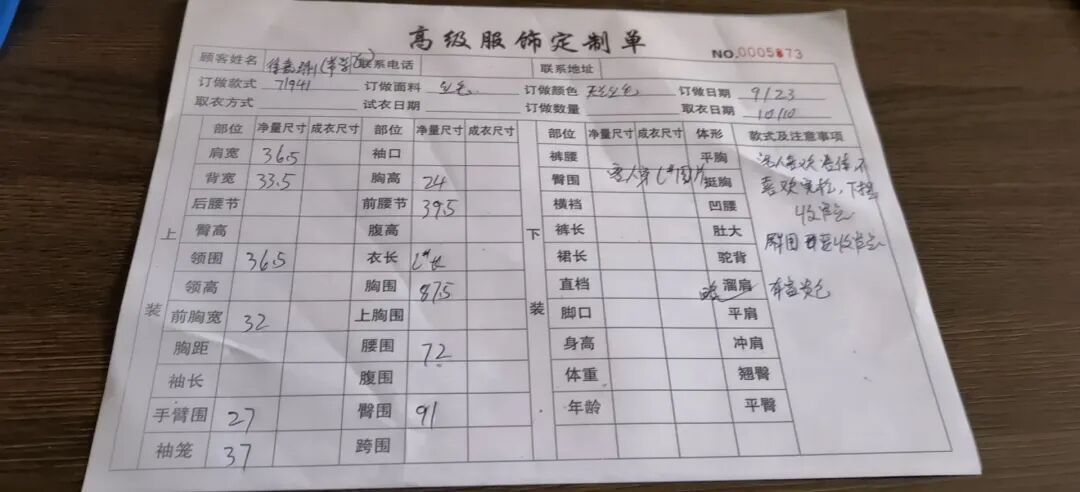 高级服饰定制单
NO.0005873
顾客姓名 联系电话 联系地址
订做款式 71941 订做面料 订做颜色 订做日期 9/23
取衣方式 试衣日期 订做数量 取衣日期 10/10
部位 净量尺寸 成衣尺寸 部位 净量尺寸 成衣尺寸 部位 净量尺寸 成衣尺寸 体形 款式及注意事项
肩宽 36.5 袖口 裤腰 平胸
背宽 33.5 胸高 24 臀围 挺胸 喜欢宽松,下摆
后腰节 前腰节 39.5 横裆 凹腰
上 臀高 腹高 下 裤长 肚大
领围 36.5 衣长 裙长 驼背
领高 胸围 87.5 直档 溜肩
装 前胸宽 32 上胸围 装 脚口 平肩
胸距 腰围 72 身高 冲肩
袖长 腹围 体重 翘臀
手臂围 27 臀围 91 年龄 平臀
袖笼 37 跨围